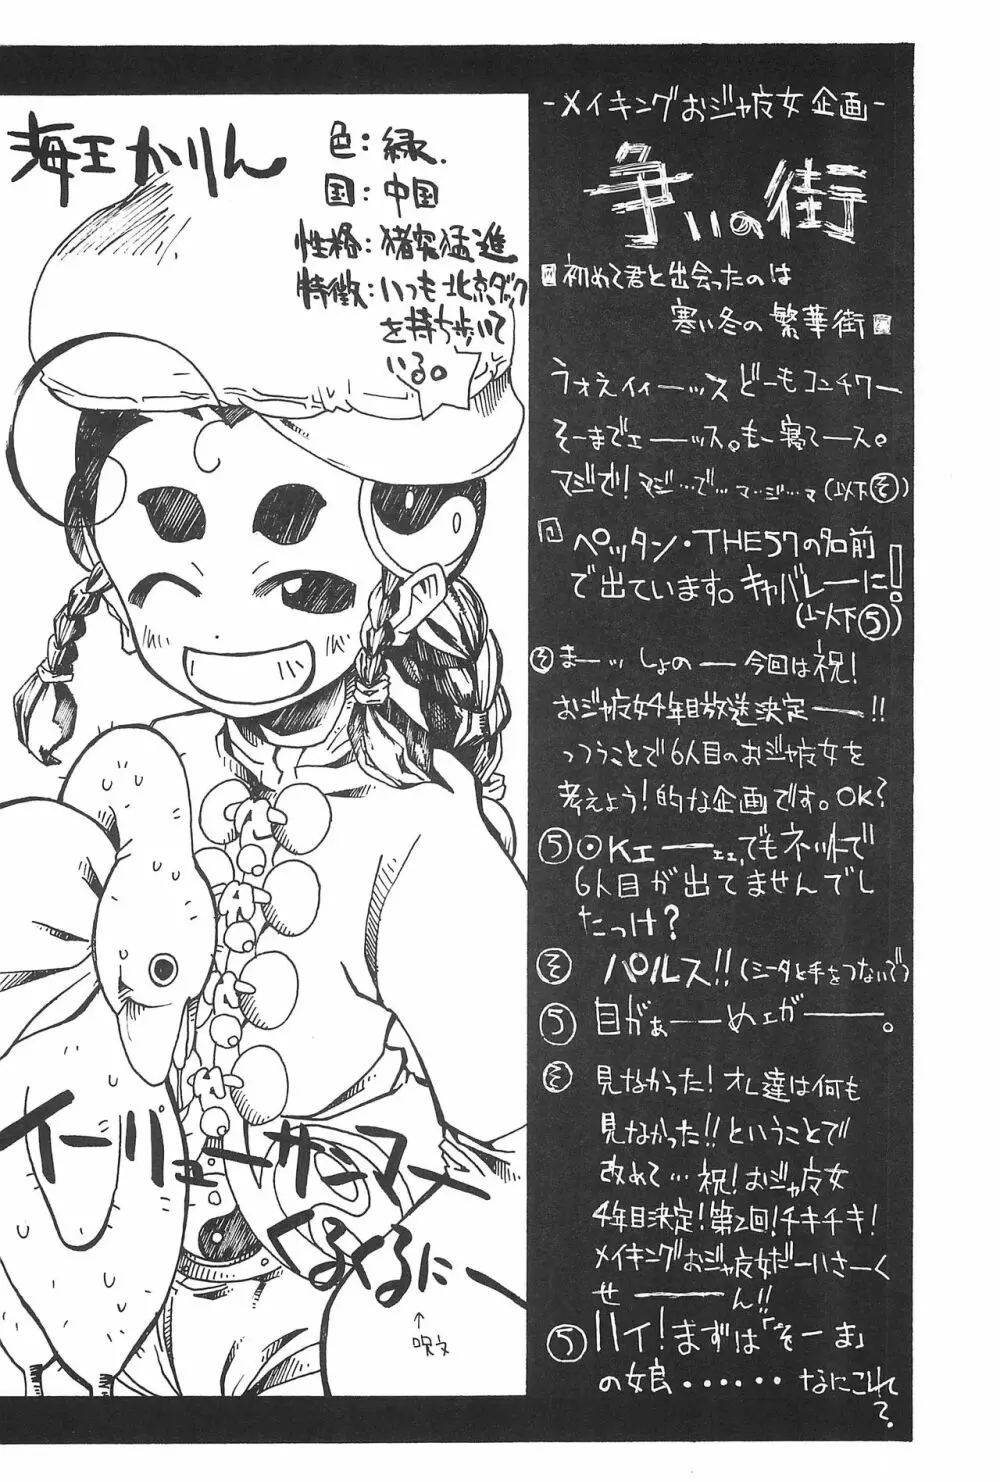 海王かりん
色：緑.
国：中国
性格：猪突猛進
特徴：いつも北京ダック
を持ち歩いて
いる。
イーリューガーマー
くるくるにー
↑
呪文
-メイキングおジャ魔女企画-
争いの街
初めて君と出会ったのは
寒い冬の繁華街
うォえイィーッス どーもコンチワー
そーまでェーッス。もー寝てース。
マジで！マジ…で…マ…ジ…マ(以下そ)
ペッタン・THE57の名前
で出ています。キャバレーに！
(以下5)
そ まーッ しょのー 今回は祝！
おジャ魔女4年目放送決定ー!!
っつうことで6人目のおジャ魔女を
考えよう！的な企画です。OK？
5 OKェーェェ,でもネットで
6人目が出てませんでし
たっけ？
そ バルス!!(シータと手をつないで)
5 目がぁーめェがー。
そ 見なかった！オレ達は何も
見なかった!!ということで
改めて…祝！おジャ魔女
4年目決定！第2回！チキチキ！
メイキングおジャ魔女だーいさーく
せーん!!
5 ハイ！まずは「そーま」
の娘・・・・・・なにこれ
？